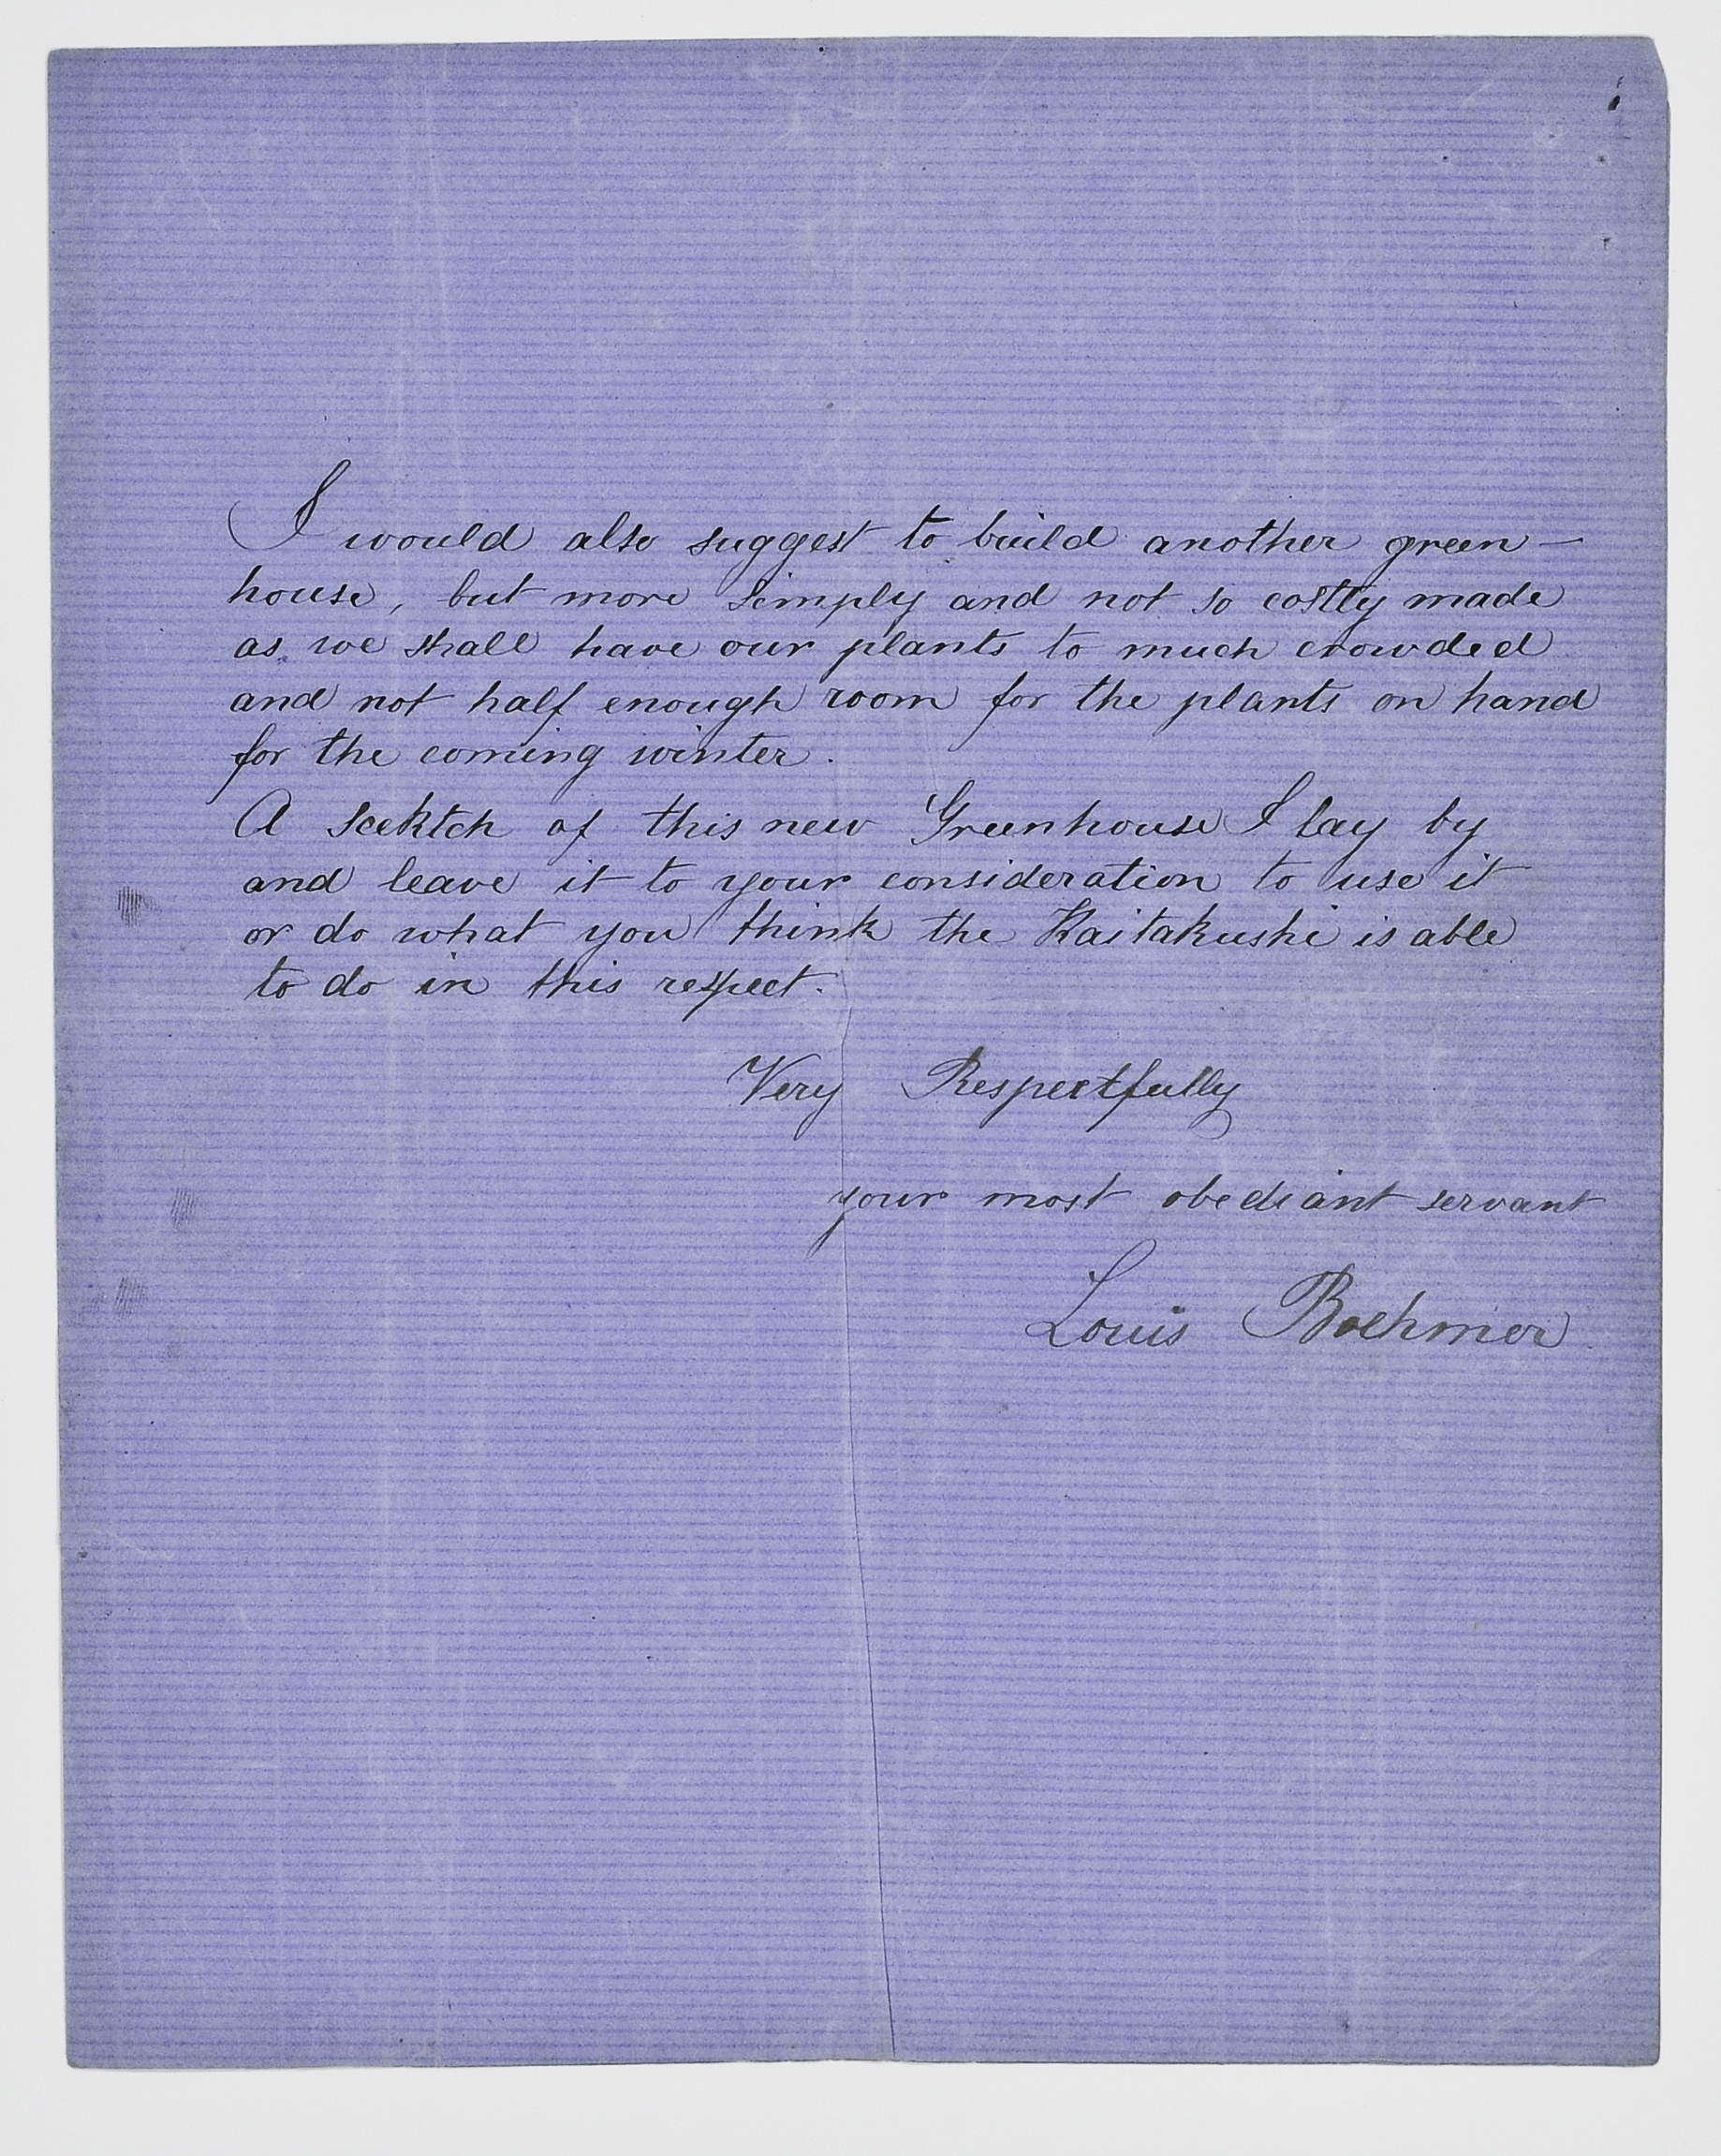 I would also suggest to build another green-
house, but more simply and not so costly made
as we shall have our plants to much crowded
and not half enough room for the plants on hand
for the coming winter.
A scektch of this new Greenhouse I lay by
and leave it to your consideration to use it
or do what you think the Kaitakushi is able
to do in this respect.
Very Respectfully
your most obediant servant
Louis Boehmer